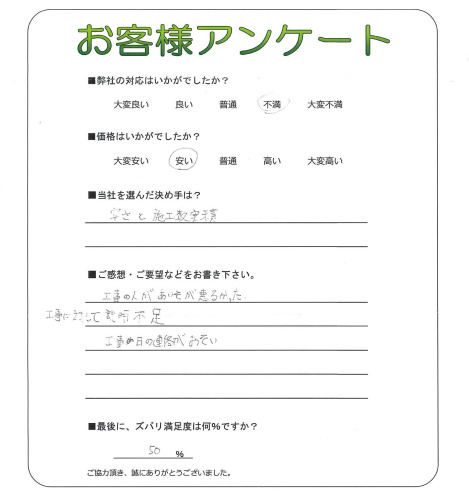 お客様アンケート
■弊社の対応はいかがでしたか？
大変良い 良い 普通 不満 大変不満
■価格はいかがでしたか？
大変安い 安い 普通 高い 大変高い
■当社を選んだ決め手は？
安さと施工数実積
■ご感想・ご要望などをお書き下さい。
工事の人があいそが悪るかった
工事に対して説明不足
工事の日の連絡がおそい
■最後に、ズバリ満足度は何%ですか？
50 %
ご協力頂き、誠にありがとうございました。